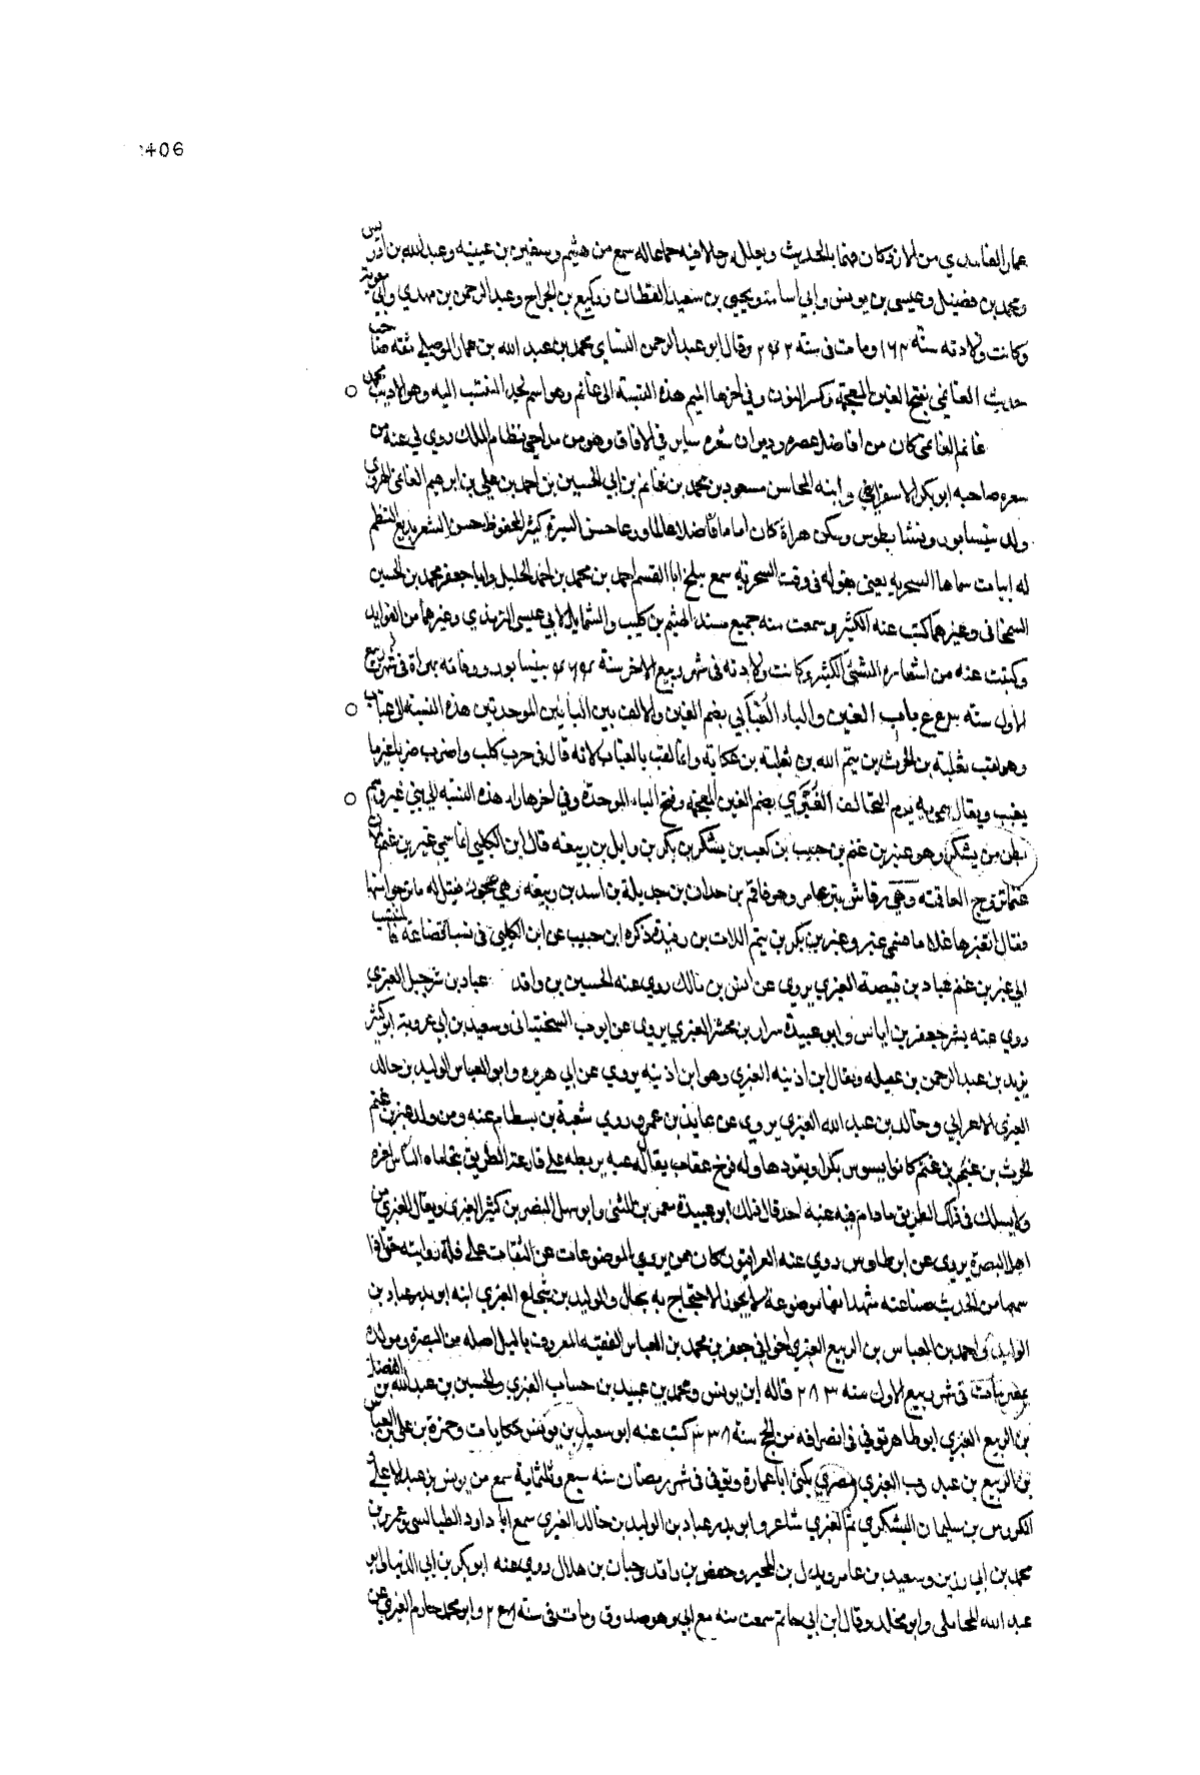 406
عمار الغامدي من الازد كان فهما بالحديث وبعلله رحالا فيه جماعا له سمع من هشيم وسفين بن عيينه وعبد الله بن ادريس
ومحمد بن فضيل وعيسى بن يونس وابي اسامة ويحيى بن سعيد القطان ووكيع بن الجراح وعبد الرحمن بن مهدي وابي معوية
وكانت ولادته سنة ١٦٢ ومات في سنة ٢٤٢ وقال ابو عبد الرحمن النساي محمد بن عبد الله بن عمار الموصلي ثقه صاحب
حديث الغانمي بفتح الغين المعجمة وكسر النون وفي اخرها الميم هذه النسبة الى غانم وهو اسم لجد المنتسب اليه وهو الاديب محمد
غانم الغانمي كان من افاضل عصره وديوان شعره ساير في الافاق وهو من مداحي نظام الملك روى لي عنه من
شعره صاحبه ابو بكر الاسفزاري وابنه المحاسن مسعود بن محمد بن غانم بن ابي الحسين بن احمد بن علي بن ابرهيم الغانمي الهروي
ولد بنيسابور ونشا بطوس وسكن هراة كان اماما فاضلا عالما ورعا حسن السيرة كثير المحفوظ حسن الشعر بديع النظم
له ابيات سماها السحرية يعني بقوله في وقت السحرية سمع ببلخ ابا القسم احمد بن محمد بن احمد الخليلي وابا جعفر محمد بن الحسين
السمنجاني وغيرهما كتبت عنه الكثير وسمعت منه جميع مسند الهيثم بن كليب والشمايل لابي عيسى الترمذي وغيرهما من الفوايد
وكتبت عنه من اشعاره الشيئ الكثير وكانت ولادته في شهر ربيع الاخر سنة بنيسابور ووفاته بهراة في شهر ربيع
الاول سنة باب الغين والباء الغبابي بضم الغين والالف بين البائين الموحدتين هذه النسبة الى غباب
وهو لقب ثعلبة بن الحرث بن تيم الله بن ثعلبة بن عكابة وانما لقب بالغباب لانه قال في حرب كلب واضرب ضربا غير ما
يغبب ويقال سمي به يوم التحالف الغبري بضم الغين المعجمة وفتح الباء الموحدة وفي اخرها راء هذه النسبة الى بني غبر وهم
بطن من يشكر وهو غبر بن غنم بن حبيب بن كعب بن يشكر بن بكر بن وايل بن ربيعه قال ابن الكلبي انما سمي غبر بن غنم لان
غنما تزوج وهي رقاش بنت عامر وهو بن جدان بن جديلة بن اسد بن ربيعه وهي عجوز فقيل له ما ترجوا منها
فقال اتغبرها غلاما فسمي غبر وغبر بن بكر بن تيم اللات بن رفيدة ذكره ابن حبيب عن ابن الكلبي في نسب قضاعة فالمنتسب
الى غبر بن غنم عباد بن قبيصة الغبري يروي عن انس بن مالك روى عنه الحسين بن واقد عباد بن شرحبيل الغبري
روى عنه بشر جعفر بن اياس وابو عبيدة سرار بن مجشر الغبري يروي عن ايوب السختياني وسعيد بن ابي عروبة ابو كثير
يزيد بن عبد الرحمن بن غفيلة ويقال ابن اذينه الغبري وهو ابن اذينه يروي عن ابي هريره وابو العباس الوليد بن خالد
الغبري الاعرابي وخالد بن عبد الله الغبري يروي عن عايذ بن عمرو روى شعبة بن بسطام عنه ومن ولد غبر بن غنم
الحرث بن غبر بن غنم كانوا يسوس بكرا ويقودها وله فرخ عقاب يقال له عبه يربطه على قارعة الطريق يتحاماه الناس لعزه
ولا يسلك في ذلك الطريق مادام فيه عبه احد قال ذلك ابو عبيدة معمر بن المثنى وابو سهل النضر بن كثير الغبري ويقال الغبري من
اهل البصرة يروي عن ابن طاوس روى عنه العراقيون كان ممن يروي الموضوعات عن الثقات على قلة روايته حتى اذا
سمعها من الحديث صناعته شهد انها موضوعة لا يجوز الاحتجاج به بحال والوليد بن شجاع الغبري ابنه ابو بدر عباد بن
الوليد واحمد بن العباس بن الربيع الغبري اخو ابي جعفر بن محمد بن العباس الفقيه المعروف اصله من البصرة ومولده
بمصر مات في شهر ربيع الاول سنة ٢٨٣ قاله ابن يونس ومحمد بن عبيد بن حساب الغبري والحسين بن عبد الله بن الفضل
بن الربيع الغبري ابو طاهر توفي في انصرافه من الحج سنة ٣٣٨ كتب عنه ابو سعيد بن يونس حكايات وحمزة بن علي بن العباس
بن الربيع بن عبد رب الغبري مصري يكنى ابا عمارة وتوفي في شهر رمضان سنه سبع وثلثماية سمع من يونس بن عبد الاعلى
الكروس بن سليمان اليشكري ثم الغبري شاعر وابو بدر عباد بن الوليد بن خالد الغبري سمع ابا داود الطيالسي وعمر بن
محمد بن ابي رزين وسعيد بن عامر وبدل بن المحبر وحفص بن واقد وحبان بن هلال روى عنه ابو بكر بن ابي الدنيا وابو
عبد الله المحاملي وابن مخلد وقال ابن ابي حاتم سمعت منه مع ابي وهو صدوق ومات في سنة وابو محمد حازم الغبري عن